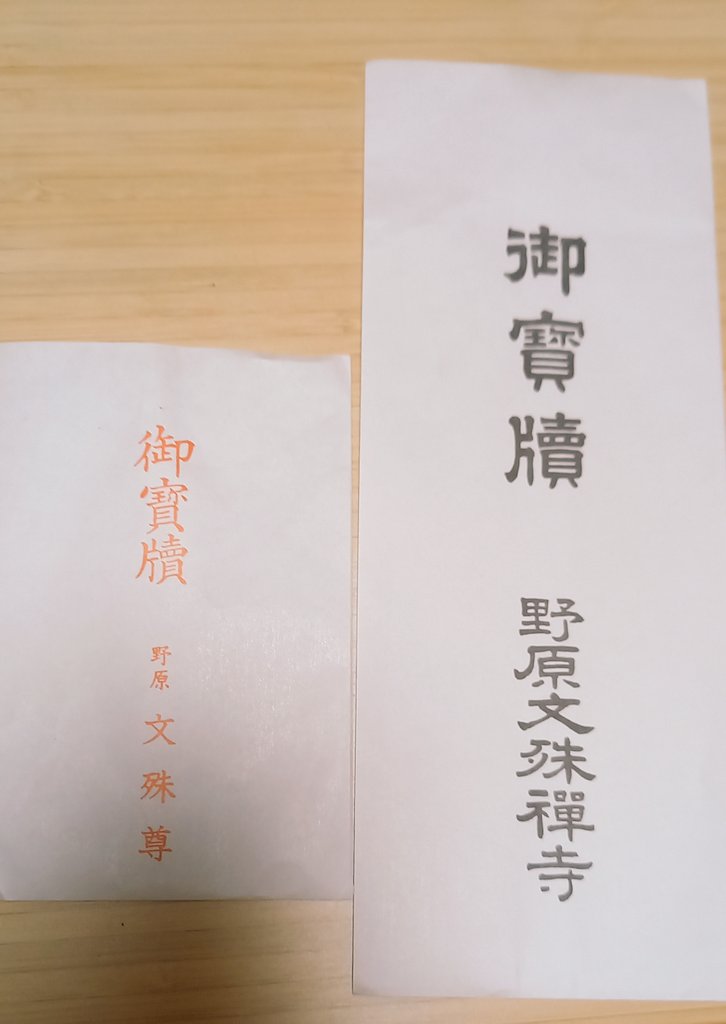 御寶牘
野原文殊禪寺
御寶牘
野原
文殊尊